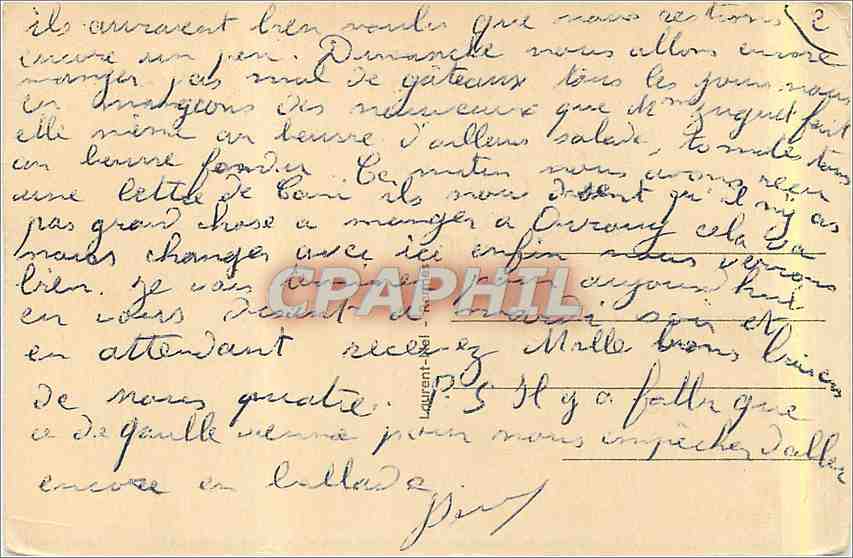 ils auraient bien voulu que nous restions 2
encore un peu. Dimanche nous allons encore
manger pas mal de gâteaux tous les jours nous
en mangeons des nouveaux que Mme fait
elle même au beurre d'ailleurs salade, tomates tous
au beurre fondu. Ce matin nous avons reçu
une lettre de ils nous disent qu'il n'y as
pas grand chose a manger a cela va
nous changer avec ici enfin nous verrons
bien. Je vais terminer pour aujourd'hui
en vous disant a mardi soir et
en attendant recevez Mille bons baisers
de nous quatre. P.S Il y a fallu que
de gaulle vienne pour nous empêcher d'aller
encore en ballade
CPAPHIL
Laurent-Nel - Rennes